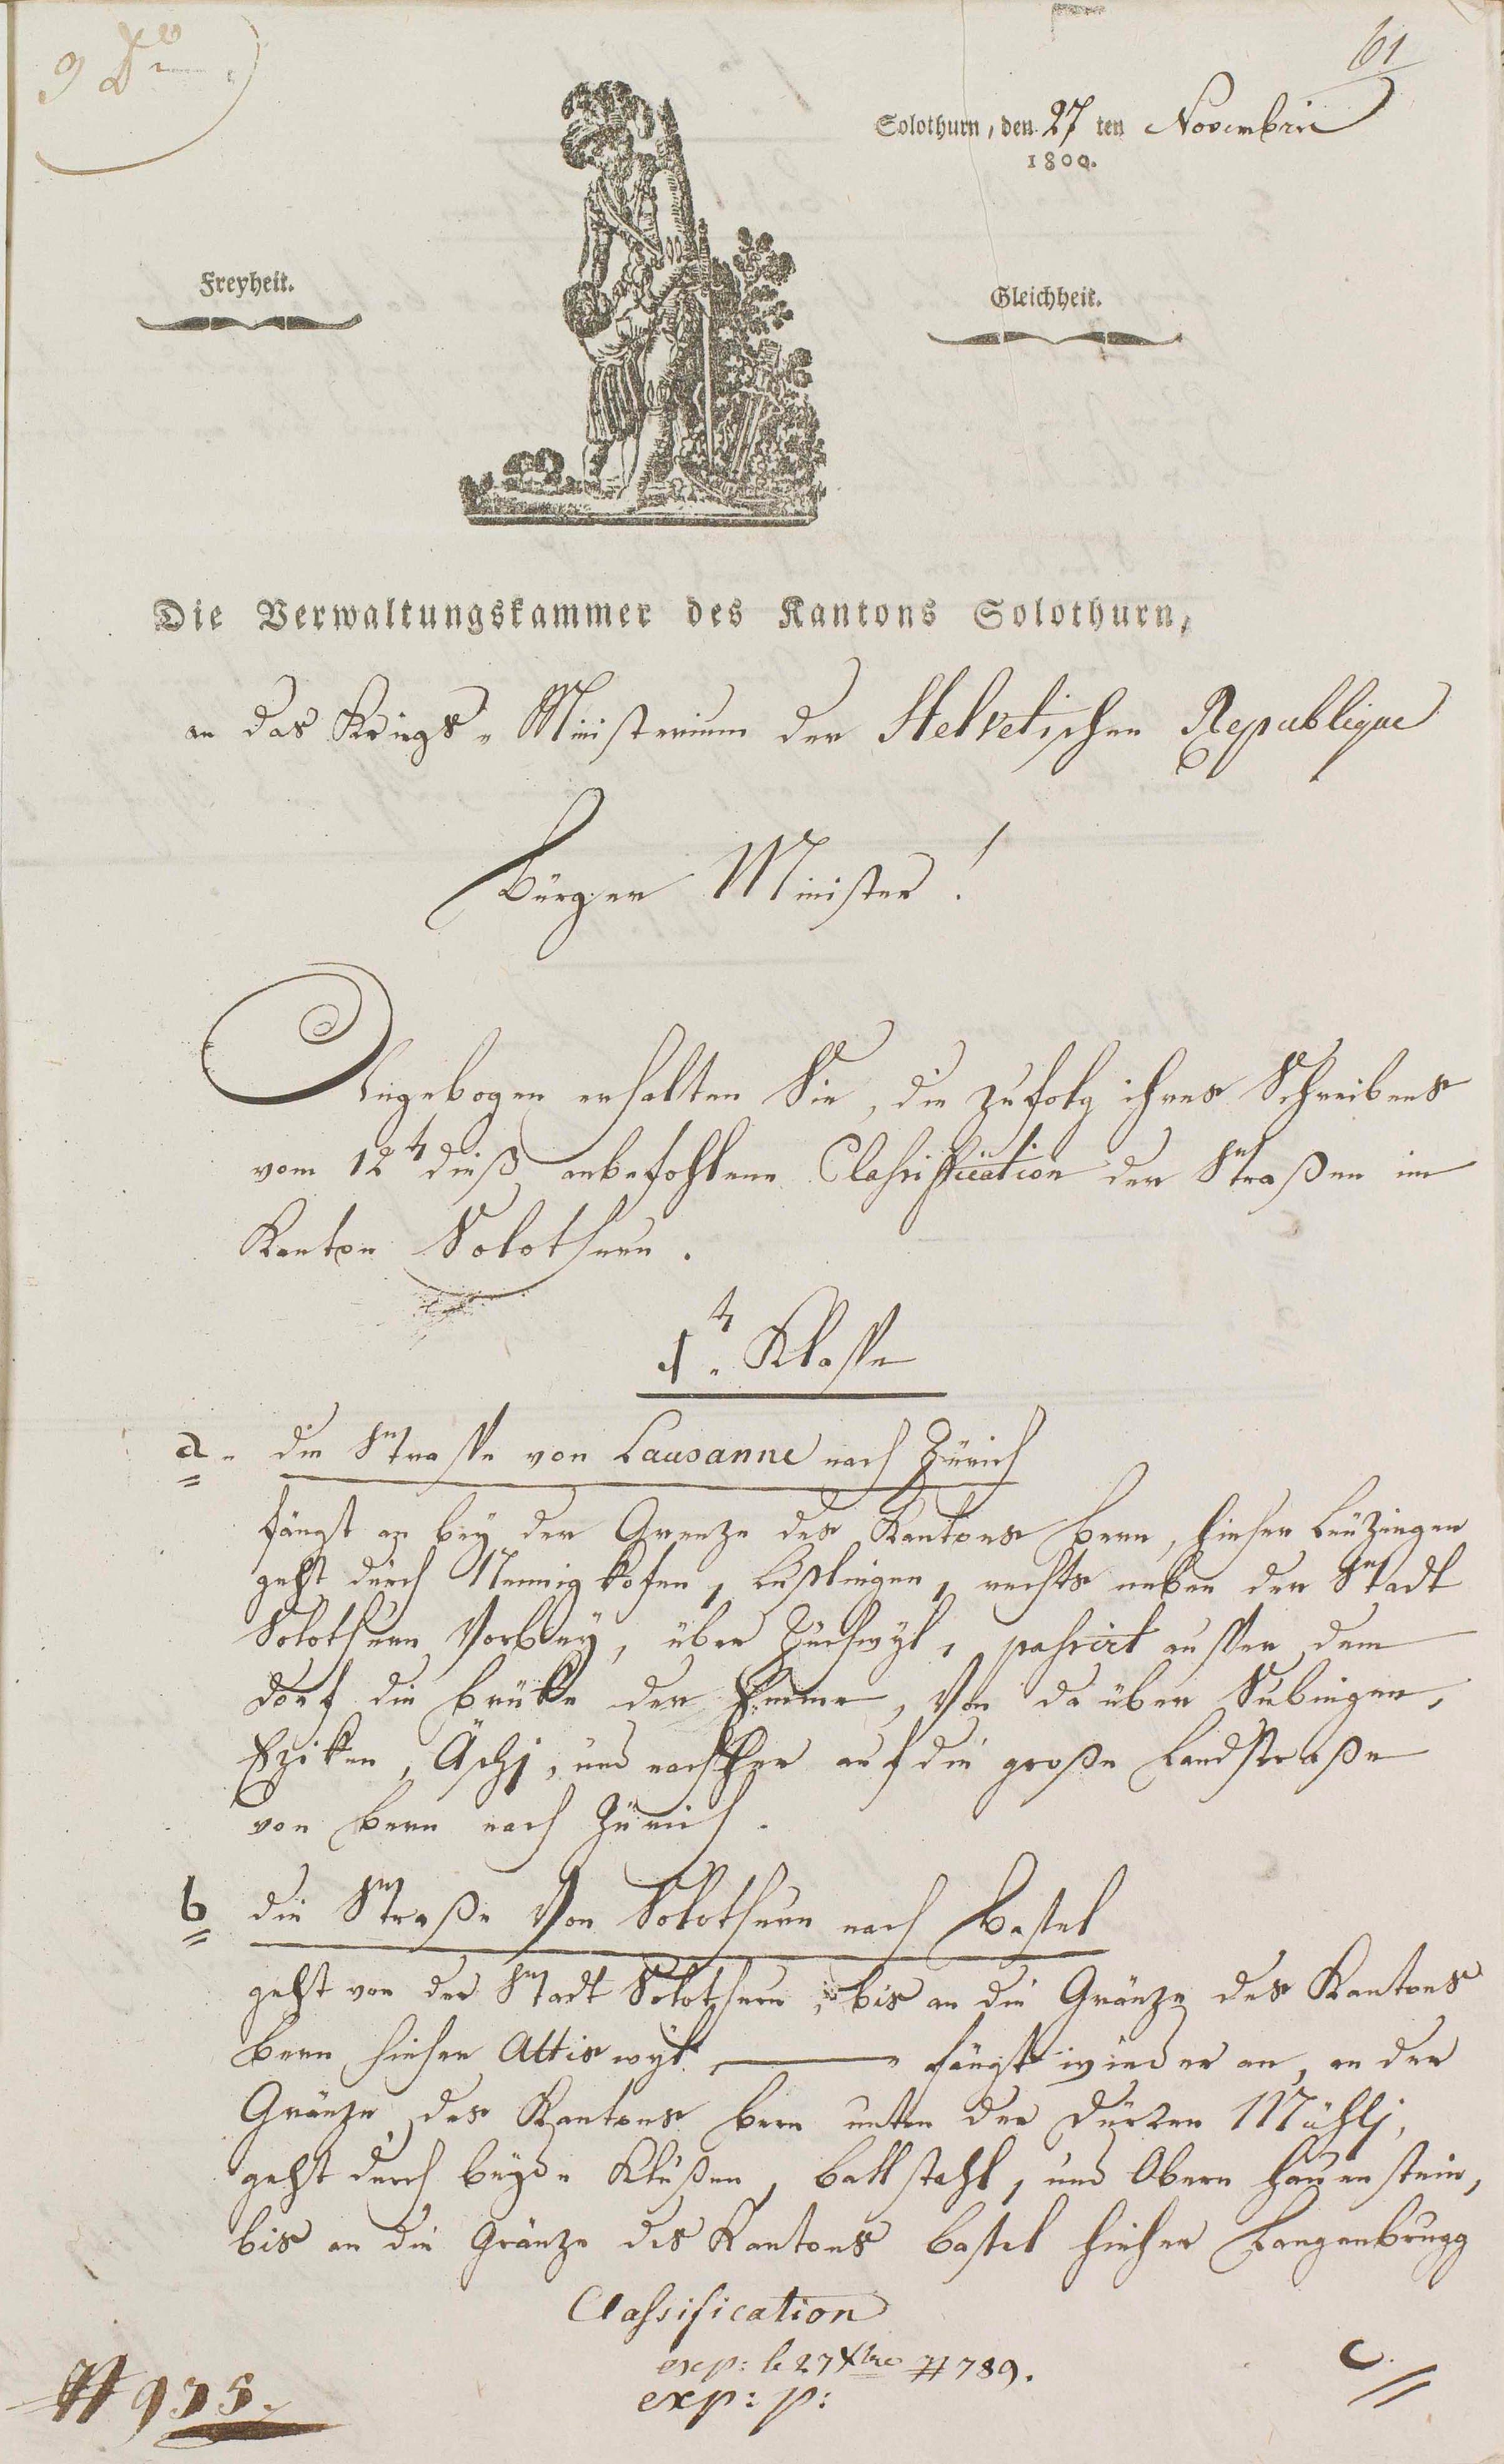 9 Dro
61
Solothurn, den 27 ten Novembris
1800.
Freyheit.
Gleichheit.
Die Verwaltungskammer des Kantons Solothurn,
an das Kriegs-Ministerium der Helvetischen Republique
Bürger Minister!
Angebogen erhalten Sie, die zufolg ihres Schreibens
vom 12t dieß anbefohlene Classification der Straßen im
Kanton Solothurn.
1t Klasse
a. die Strasse von Lausanne nach Zürich
fängt an bey der Grenze des Kantons Bern, hieher Leüzingen
geht durch Nennigkofen, Lüßlingen, rechts neben der Stadt
Solothurn Vorbey, über Zuchwyl, passirt ausser dem
Dorf die Brükke der Emme, Von da über Subingen,
Eziken, Äschj, und nachher auf die große Landstraße
von Bern nach Zürich.
b die Straße Von Solothurn nach Basel
geht von der Stadt Solothurn, bis an die Gränze des Kantons
Bern hieher Attiswyl, fängt wieder an, an der
Gränze des Kantons Bern unter der Dürren Mühlj,
geht durch beyde Klußen, Ballstahl, und Obern Hauenstein,
bis an die Gränze des Kantons Basel hieher Langenbrugg
Classification
exp: le 27 Xbre # 789.
exp: p:
c.
# 935.